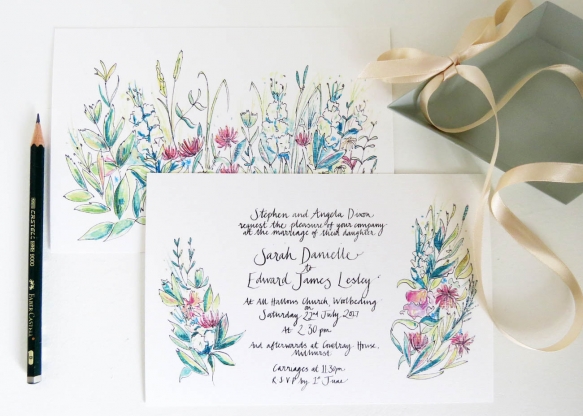 Stephen and Angela Dixon
request the pleasure of your company
at the marriage of their daughter
Sarah Danielle
to
Edward James Lesley
At All Hallows Church, Woolbeding
on
Saturday 22nd July 2017
At 2.30 pm
And afterwards at Cowdray House,
Midhurst
Carriages at 11.30pm
RSVP by 1st June
CASTELL 9000
FABER-CASTELL